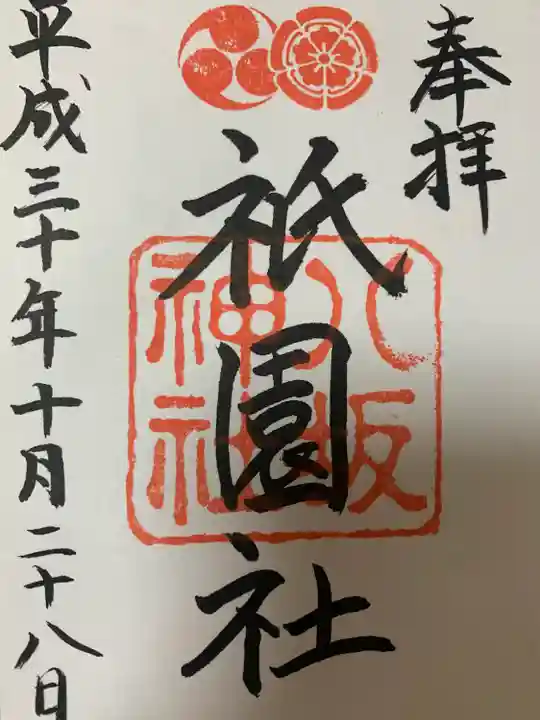 奉拝
祇園社
八坂
神社
平成三十年十月二十八日